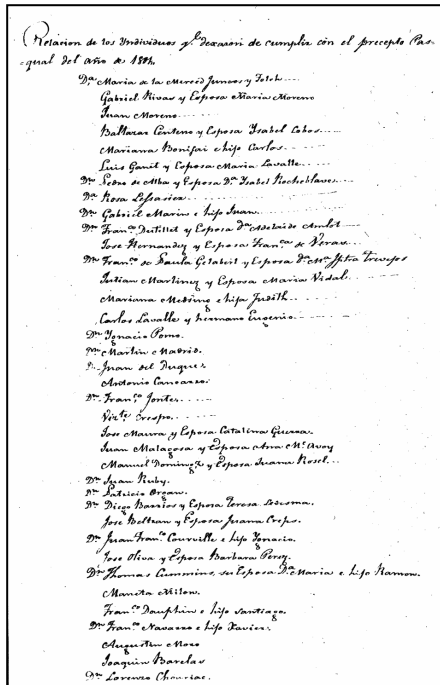 Relacion de los Yndividuos q.e dexaron de cumplir con el precepto Pas-
-qual del año de 1804
D.a Maria de la Merced Juncos y Folch
Gabriel Rivas y Esposa Maria Moreno
Juan Moreno
Baltazar Centeno y Esposa Ysabel Lobos
Mariana Bonifai e hijo Carlos
Luis Ganit y Esposa Maria Lavalle
D.n Pedro de Alba y Esposa D.a Ysabel Rocheblave
D.a Rosa
D.n Gabriel Marin e hijo Juan
D.n Fran.co y Esposa D.a Adelaide
Jose Hernandez y Esposa Fran.ca de Veras
D.n Fran.co de Paula Gelabert y Esposa D.a M.a Trevejos
Julian Martinez y Esposa Maria Vidal
Mariana Medina e hija Judith
Carlos Lavalle y hermano Eugenio
D.n Ygnacio
D.n Martin Madrid.
D.n Juan del Duque
Antonio
D.n Fran.co
Viz.te Crespo
Jose Maura y Esposa Catalina Guerra
Juan Malagosa y Esposa Ana M.c Avoy
Manuel Doming.z y Esposa Juana Rosel
D.n Juan Ruby.
D.n Patricio Organ.
D.n Diego Barrios y Esposa Teresa Ledesma.
Jose Beltran y Esposa Juana Creps.
D.n Juan Fran.co Courville e hijo Ignacio.
Jose Oliva y Esposa Barbara Perez.
D.n Thomas Cummins, su Esposa D.a Maria e hijo Ramon.
Milon.
Fran.co Dauphin e hijo Santiago.
D.n Fran.co Navarro e hijo Xavier.
Augustin Moro
Joaquin Barelas
D.n Lorenzo